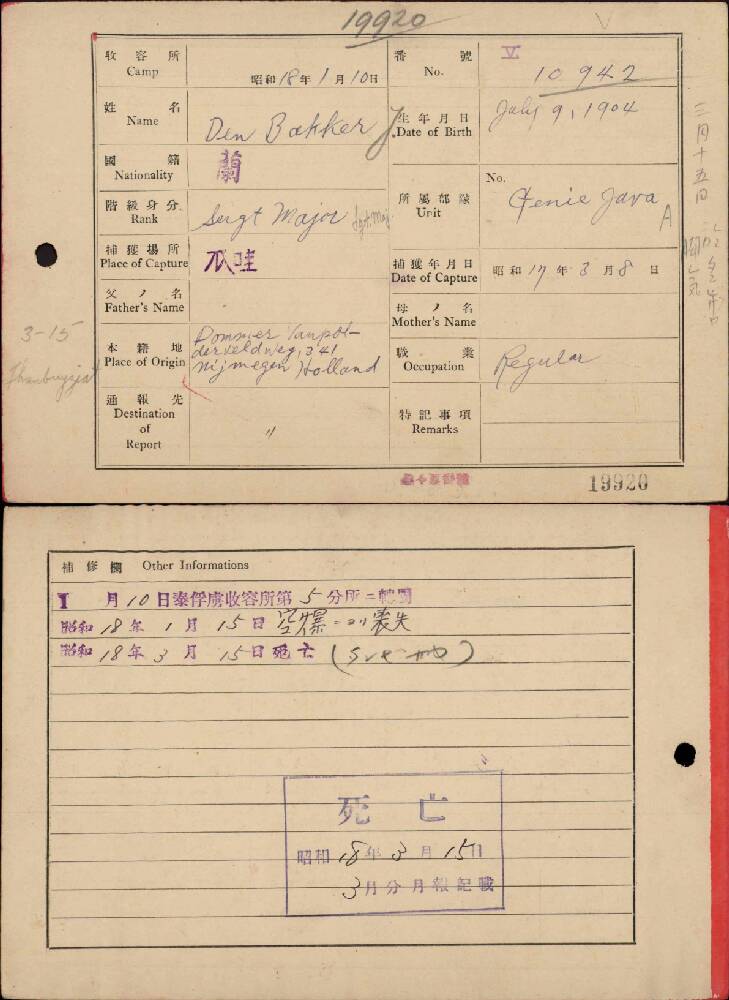 19920
收容所
Camp
昭和18年1月10日
番號
No.
V
10942
姓名
Name
Den Bakker J.
生年月日
Date of Birth
July 9, 1904
國籍
Nationality
蘭
階級身分
Rank
Sergt Major
Sgt. Maj
所屬部隊
Unit
No.
Genie Java
A
捕獲場所
Place of Capture
爪哇
捕獲年月日
Date of Capture
昭和17年3月8日
父ノ名
Father's Name
母ノ名
Mother's Name
本籍地
Place of Origin
Nijmegen Holland
職業
Occupation
Regular
通報先
Destination
of
Report
〃
特記事項
Remarks
三月十五日
脚気
3-15
19920
補修欄 Other Informations
I 月10日泰俘虜收容所第5分所ニ轉屬
昭和18年1月15日空爆ニヨリ喪失
昭和18年3月15日死亡
死亡
昭和18年3月15日
3月分月報記載